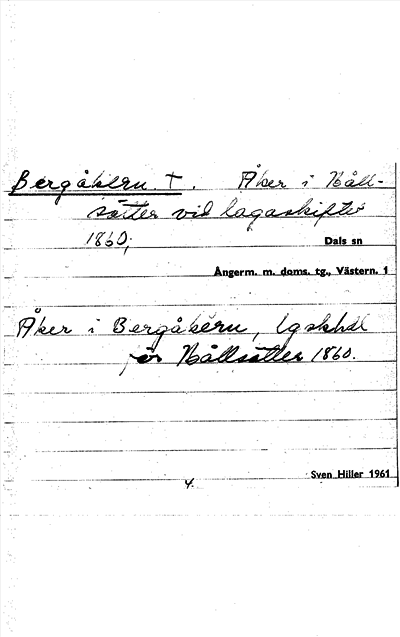 Bergåkern †. Åker i Håll-
sätter vid lagaskifte
1860;
Dals sn
Ångerm. m. doms. tg., Västern. 1
Åker i Bergåkern, lgskhdl
för Hållsätter 1860.
Sven Hiller 1961
4.